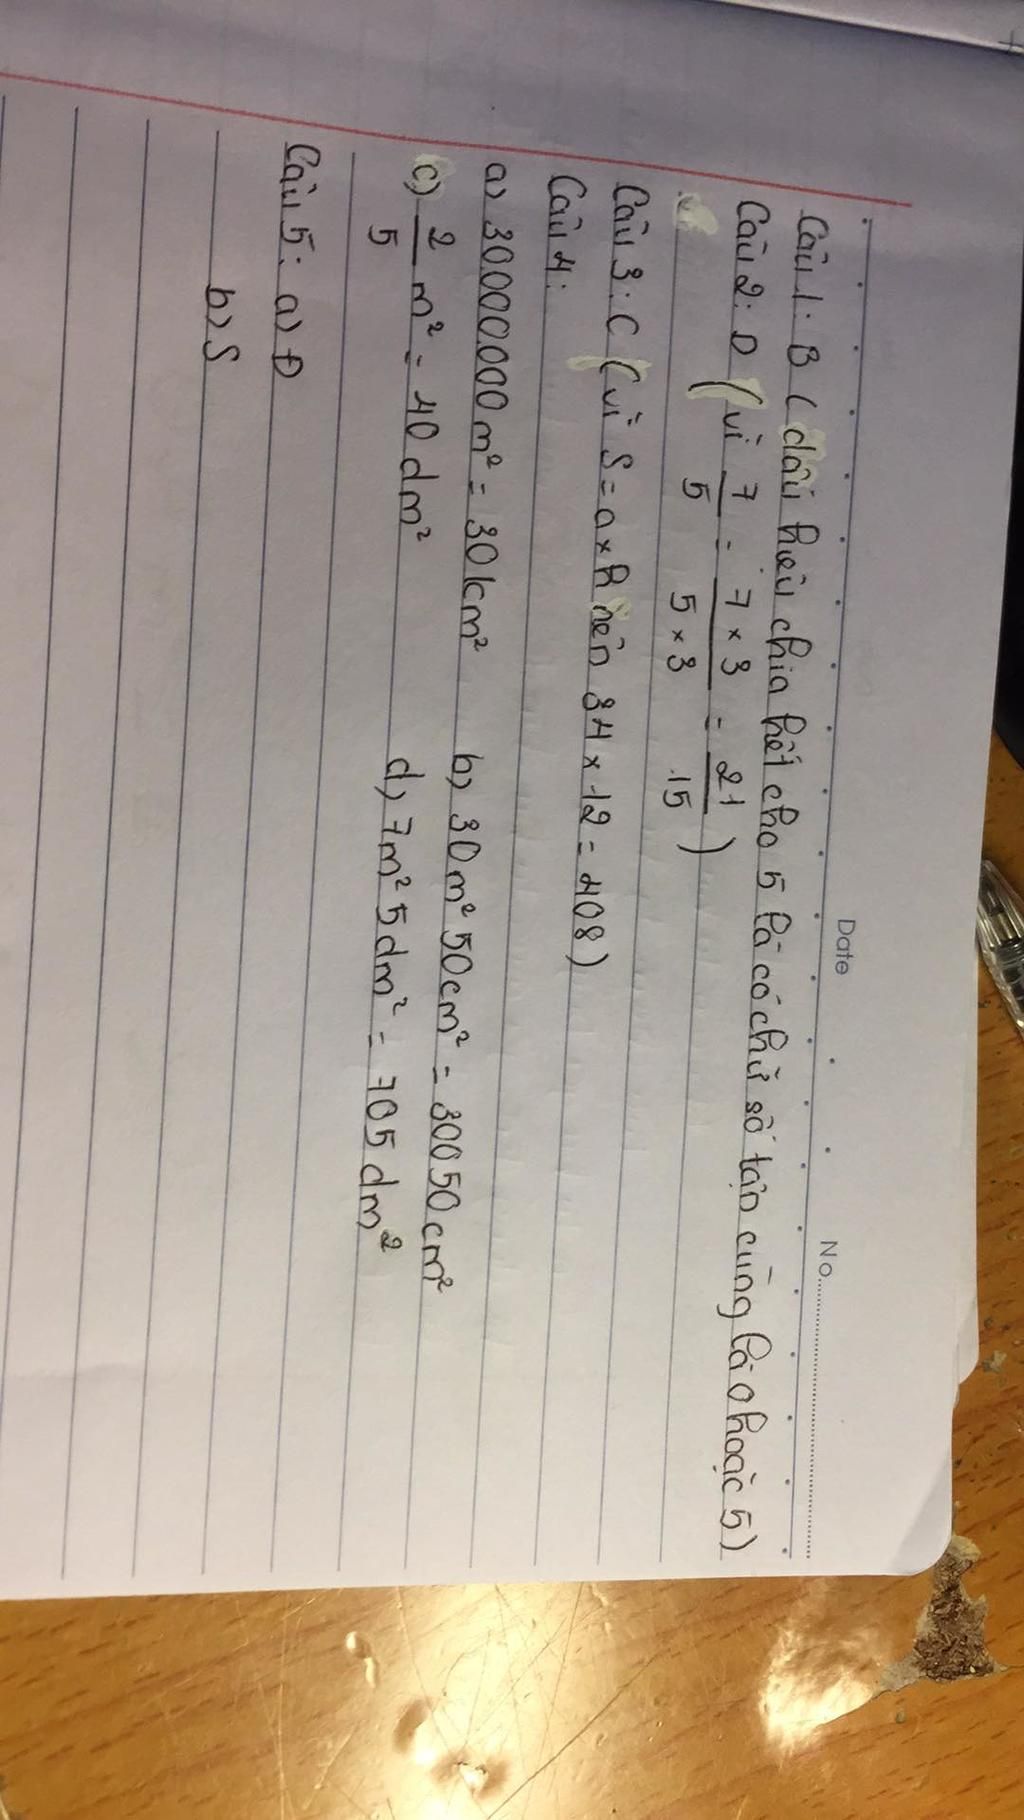 Date
No.
Câu 1: B (dấu hiệu chia hết cho 5 là có chữ số tận cùng là 0 hoặc 5)
Câu 2: D (vì 7/5 = 7 × 3/5 × 3 = 21/15)
Câu 3: C (vì S = a × h nên 34 × 12 = 408)
Câu 4:
a) 30000000 m² = 30 km² b) 30 m² 50 cm² = 30050 cm²
c) 2/5 m² = 40 dm² d) 7 m² 5 dm² = 705 dm²
Câu 5: a) Đ
b) S